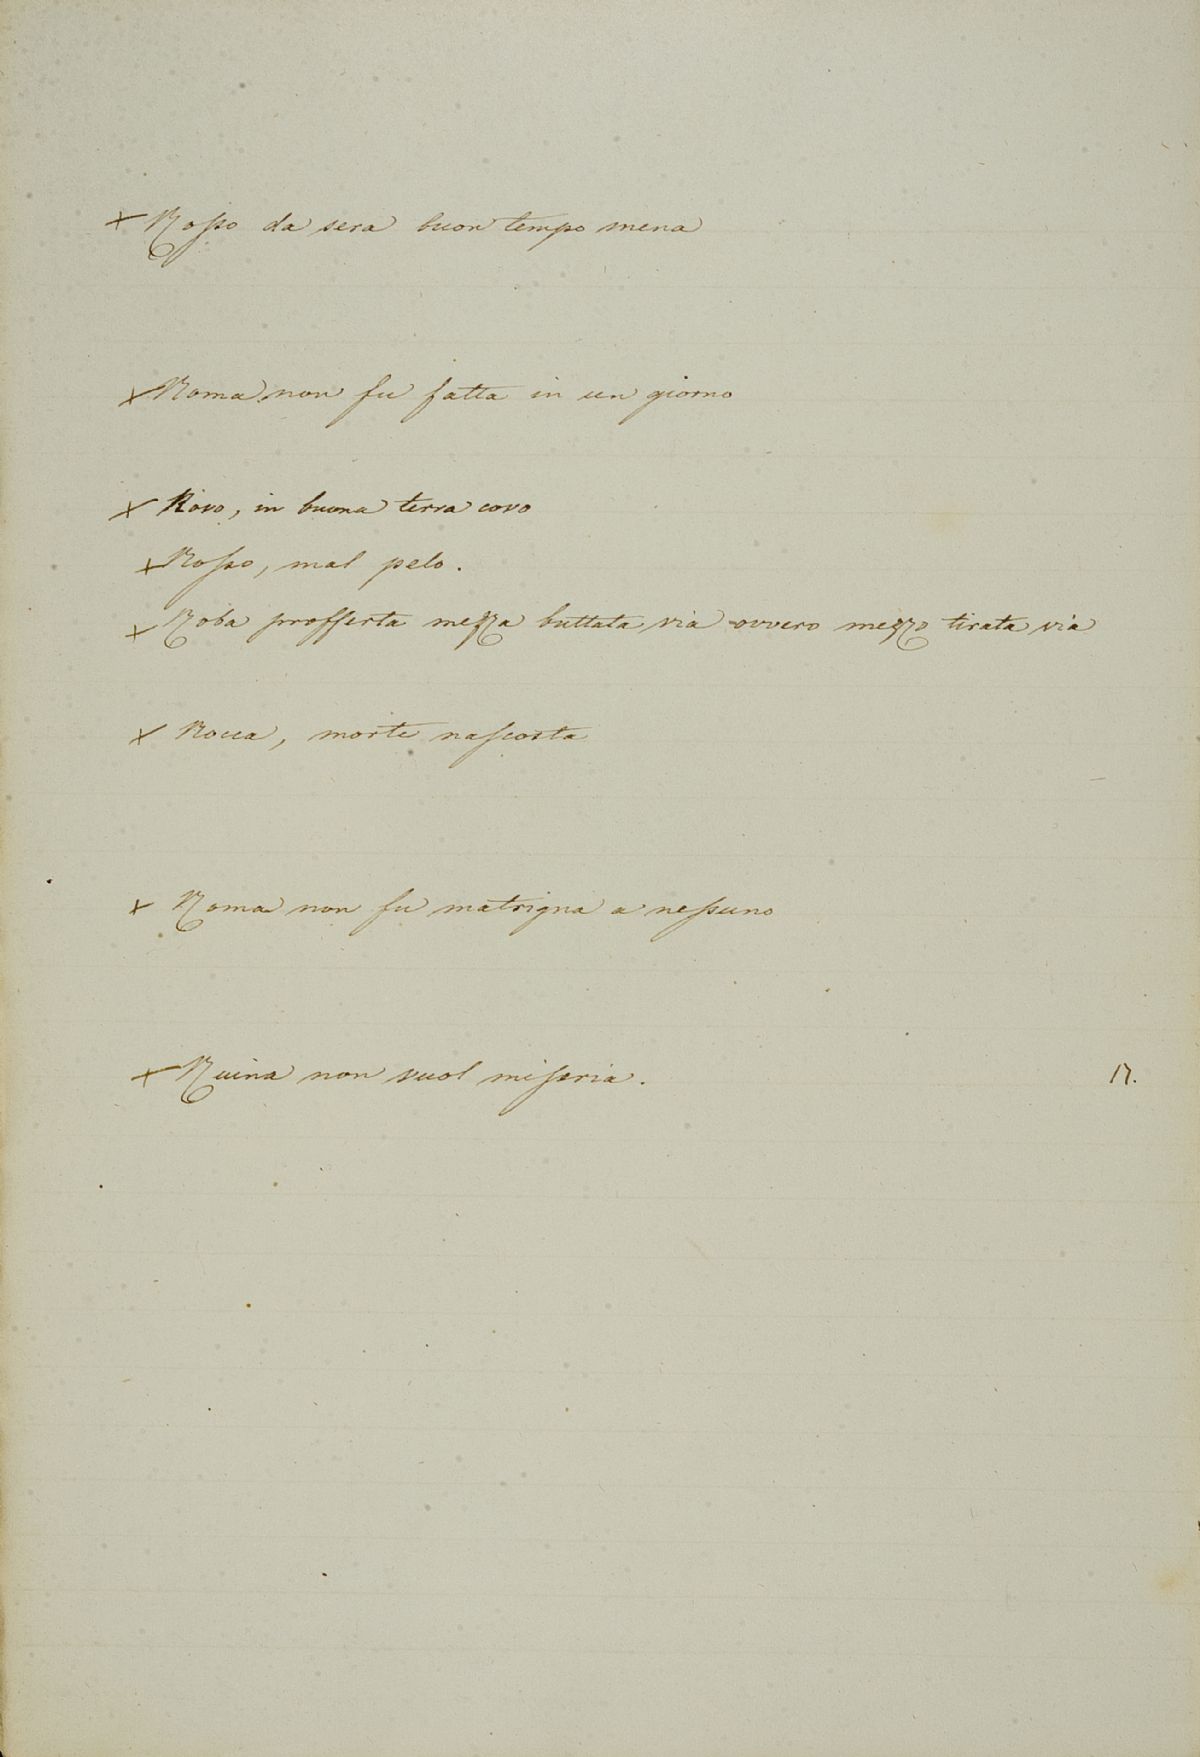 + Rosso da sera buon tempo mena
+ Roma non fu fatta in un giorno
+ Rovo, in buona terra covo
+ Rosso, mal pelo.
+ Roba profferta mezza buttata via ovvero mezzo tirata via
+ Rocca, morte nascosta
+ Roma non fu matrigna a nessuno
+ Ruina non vuol miseria. 17.